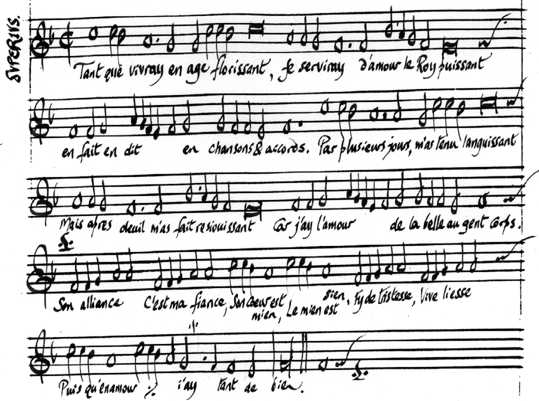 SVPERIVS.
Tant que vivray en age florissant, Je serviray d'amour le Roy puissant
en fait en dit en chansons & accords. Par plusieurs jours, m'as tenu languissant
Mais apres deuil m'as fait resiouissant Car j'ay l'amour de la belle au gent corps.
Son alliance C'est ma fiance, Son cœur est mien, Le mien est sien, Fy de tristesse, Vive liesse
Puis qu'en amour i'ay tant de bien.